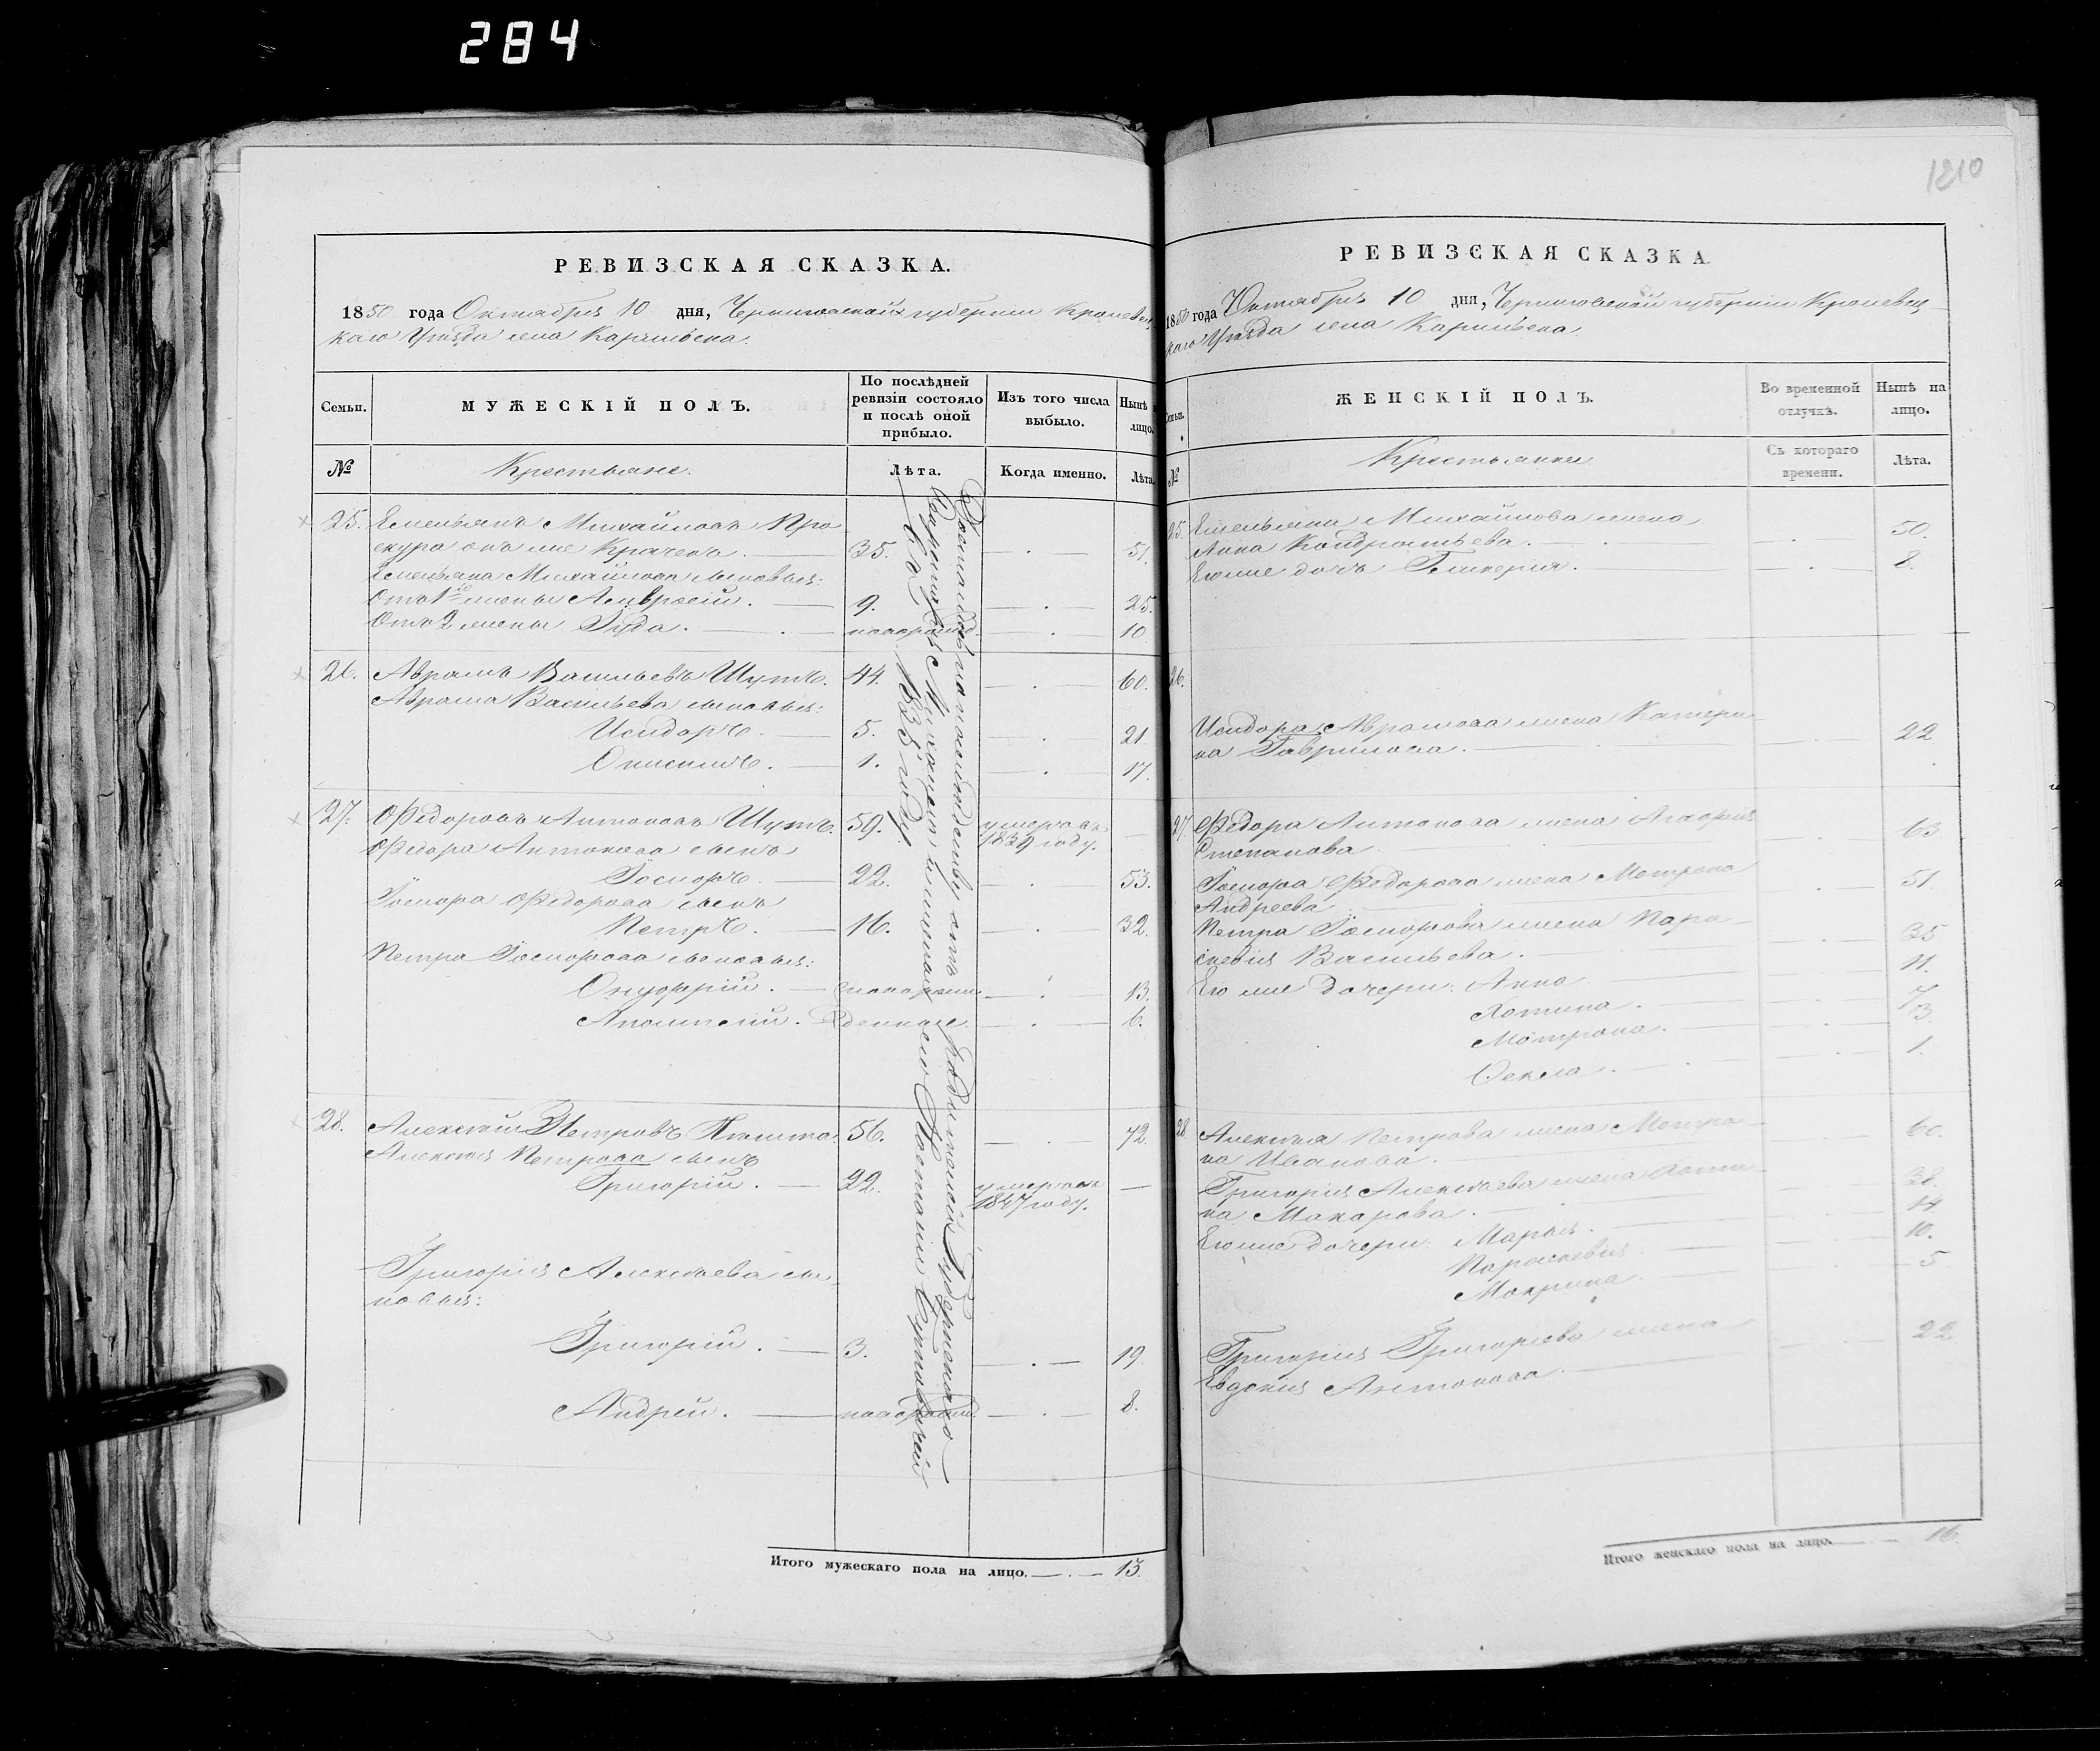 284
1210
РЕВИЗСКАЯ СКАЗКА.
1850 года Октября 10 дня, Черниговской губерніи Кролевец
каго Уѣзда села
Семьи.
МУЖЕСКІЙ ПОЛЪ.
По послѣдней ревизіи состояло и послѣ оной прибыло.
Изъ того числа выбыло.
Нынѣ на лицо.
№
Крестьяне.
Лѣта.
Когда именно.
Лѣта.
25. Емельянъ Михайловъ Про
скура онъ же 35. 51.
Емельяна Михайлова сыновья:
Отъ 1й жены Амвросій. 9. 25.
Отъ 2 жены Іуда. новорожд. 10.
26. Аврамъ Васильевъ Шутъ. 44. 60.
Аврама Васильева сыновья:
Исидоръ. 5. 21
Онисимъ. 1. 17.
27. Федоръ Антоновъ Шутъ. 59. умеръ въ 1839 году.
Федора Антонова сынъ
22. 53.
Федорова сынъ
Петръ. 16. 32.
Петра сыновья:
Онуфрій. новорожд. 13.
6.
28. Алексѣй Петровъ 56. 72.
Алексѣя Петрова сынъ
Григорій. 22. умеръ въ 1847 году.
Григорія Алексѣева сы
новья:
Григорій. 3. 19.
Андрей. новорожд. 8.
Досталось по наслѣдству отъ родителей Губернскаго
Секретаря Михаила и жены его
въ 1835 году
Итого мужескаго пола на лицо. 13.
РЕВИЗСКАЯ СКАЗКА.
1850 года Октября 10 дня, Черниговской губерніи Кролевец
каго Уѣзда села
Семьи.
ЖЕНСКІЙ ПОЛЪ.
Во временной отлучкѣ.
Нынѣ на лицо.
№
Крестьянки
Съ котораго времени.
Лѣта.
25. Емельяна Михайлова жена
Анна Кондратьева. 50.
Его же дочь Гликерія. 8.
26.
Исидора Аврамова жена Катери
на Гаврилова. 22
27. Федора Антонова жена
Степанова 63
Федорова жена Мотрона
Андреева 51
Петра жена Пара
скевія Васильева. 35
Его же дочери: Анна 11.
Хотина. 7
Мотрона. 3.
Фекла. 1.
28. Алексѣя Петрова жена Мотро
на Иванова. 60.
Григорія Алексѣева жена Хоти
на Макарова. 38.
Его же дочери: Марья. 14
Параскевія 10.
Мокрина. 5
Григорія Григоріева жена
Евдокія Антонова. 22.
Итого женскаго пола на лицо. 16.